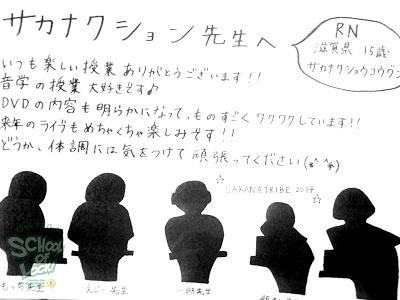 サカナクション先生へ
RN
滋賀県 15歳
サカナクショウコウグン
いつも楽しい授業ありがとうございます!!
音学の授業大好きです♪
DVDの内容も明らかになって、ものすごくワクワクしています!!
来年のライブもめちゃくちゃ楽しみです!!
どうか、体調には気をつけて頑張ってください(*^^*)
☆SAKANATRIBE 2014☆
SCHOOL OF LOCK!
もっち先生
えじー先生
一郎先生